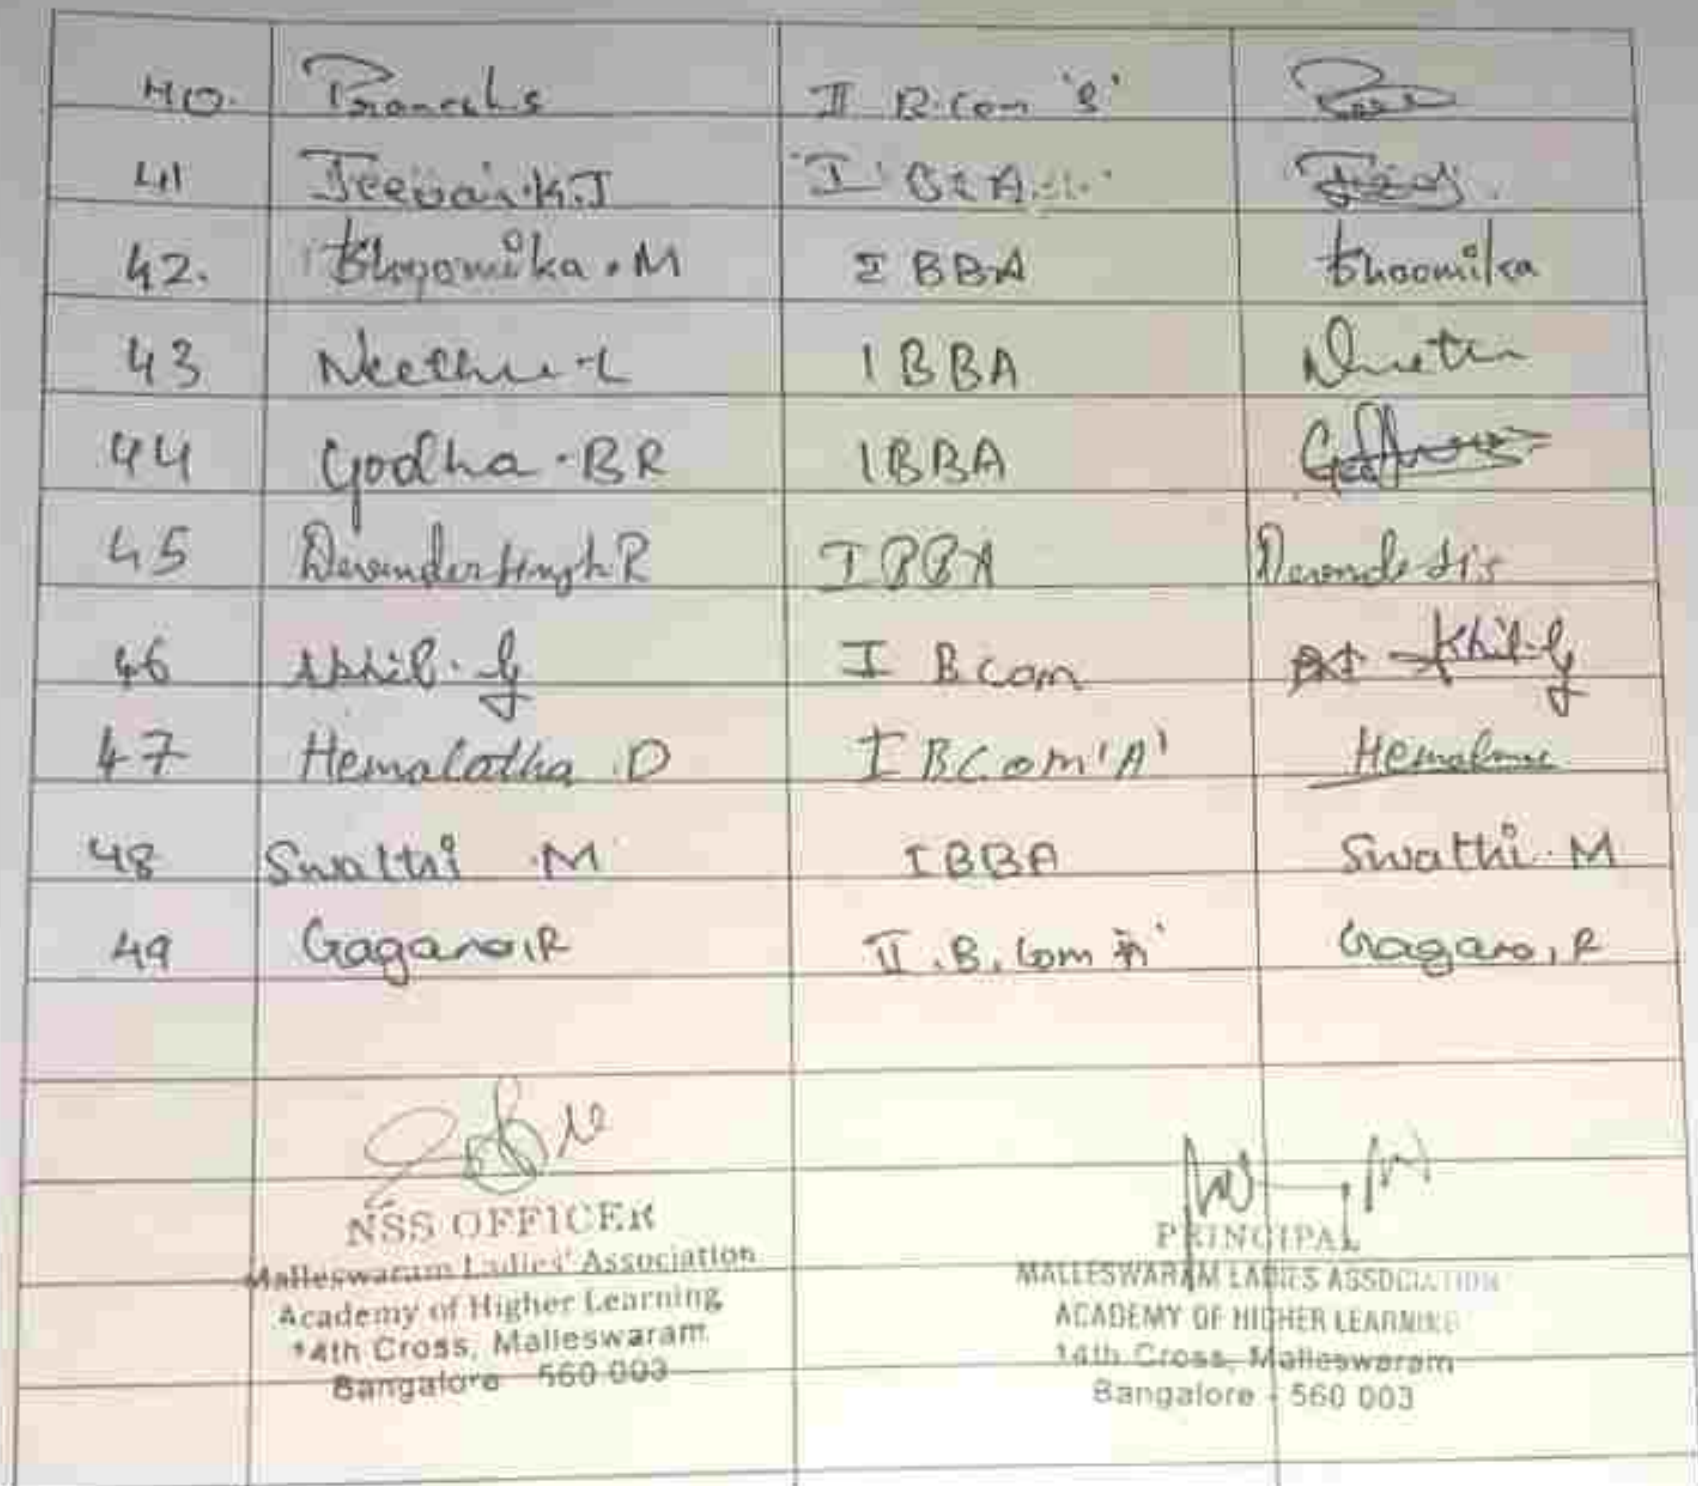 40. II B.Com 'B'
41 Jeevan.K.J I
42. Bhoomika.M I BBA Bhoomika
43 Neethu-L I BBA
44 Godha.BR I BBA
45 Devender Singh R I BBA
46 Akhil.G I B com Akhil.G
47 Hemalatha.D I BCom 'A'
48 Swathi.M I BBA Swathi.M
49 Gagan.R II.B.Com Gagan.R
NSS OFFICER
Malleswaram Ladies' Association
Academy of Higher Learning
14th Cross, Malleswaram
Bangalore 560 003
PRINCIPAL
MALLESWARAM LADIES ASSOCIATION
ACADEMY OF HIGHER LEARNING
14th Cross, Malleswaram
Bangalore - 560 003